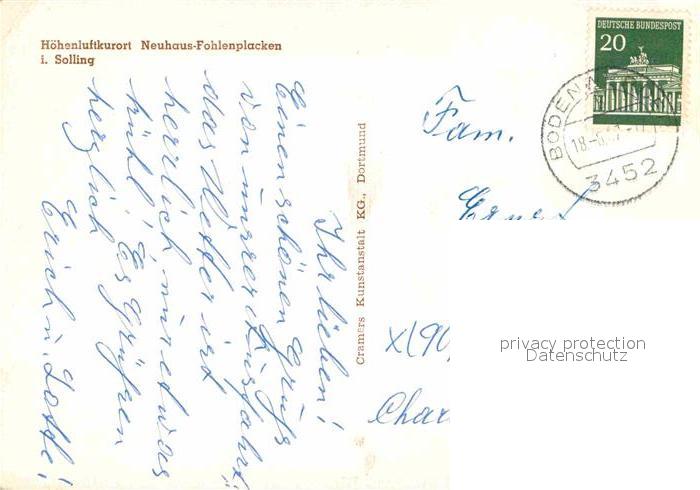 Höhenluftkurort Neuhaus-Fohlenplacken
i. Solling
Ihr lieben!
Einen schönen Gruß
von unserer Ausfahrt!
das Wetter ist
herrlich, nur etwas
kühl! Es Grüßen
herzlich
Erich u. Lotte!
Cramers Kunstanstalt KG., Dortmund
DEUTSCHE BUNDESPOST
20
BODEN
18.-6.
3452
Fam.
X(90
Char
privacy protection
Datenschutz